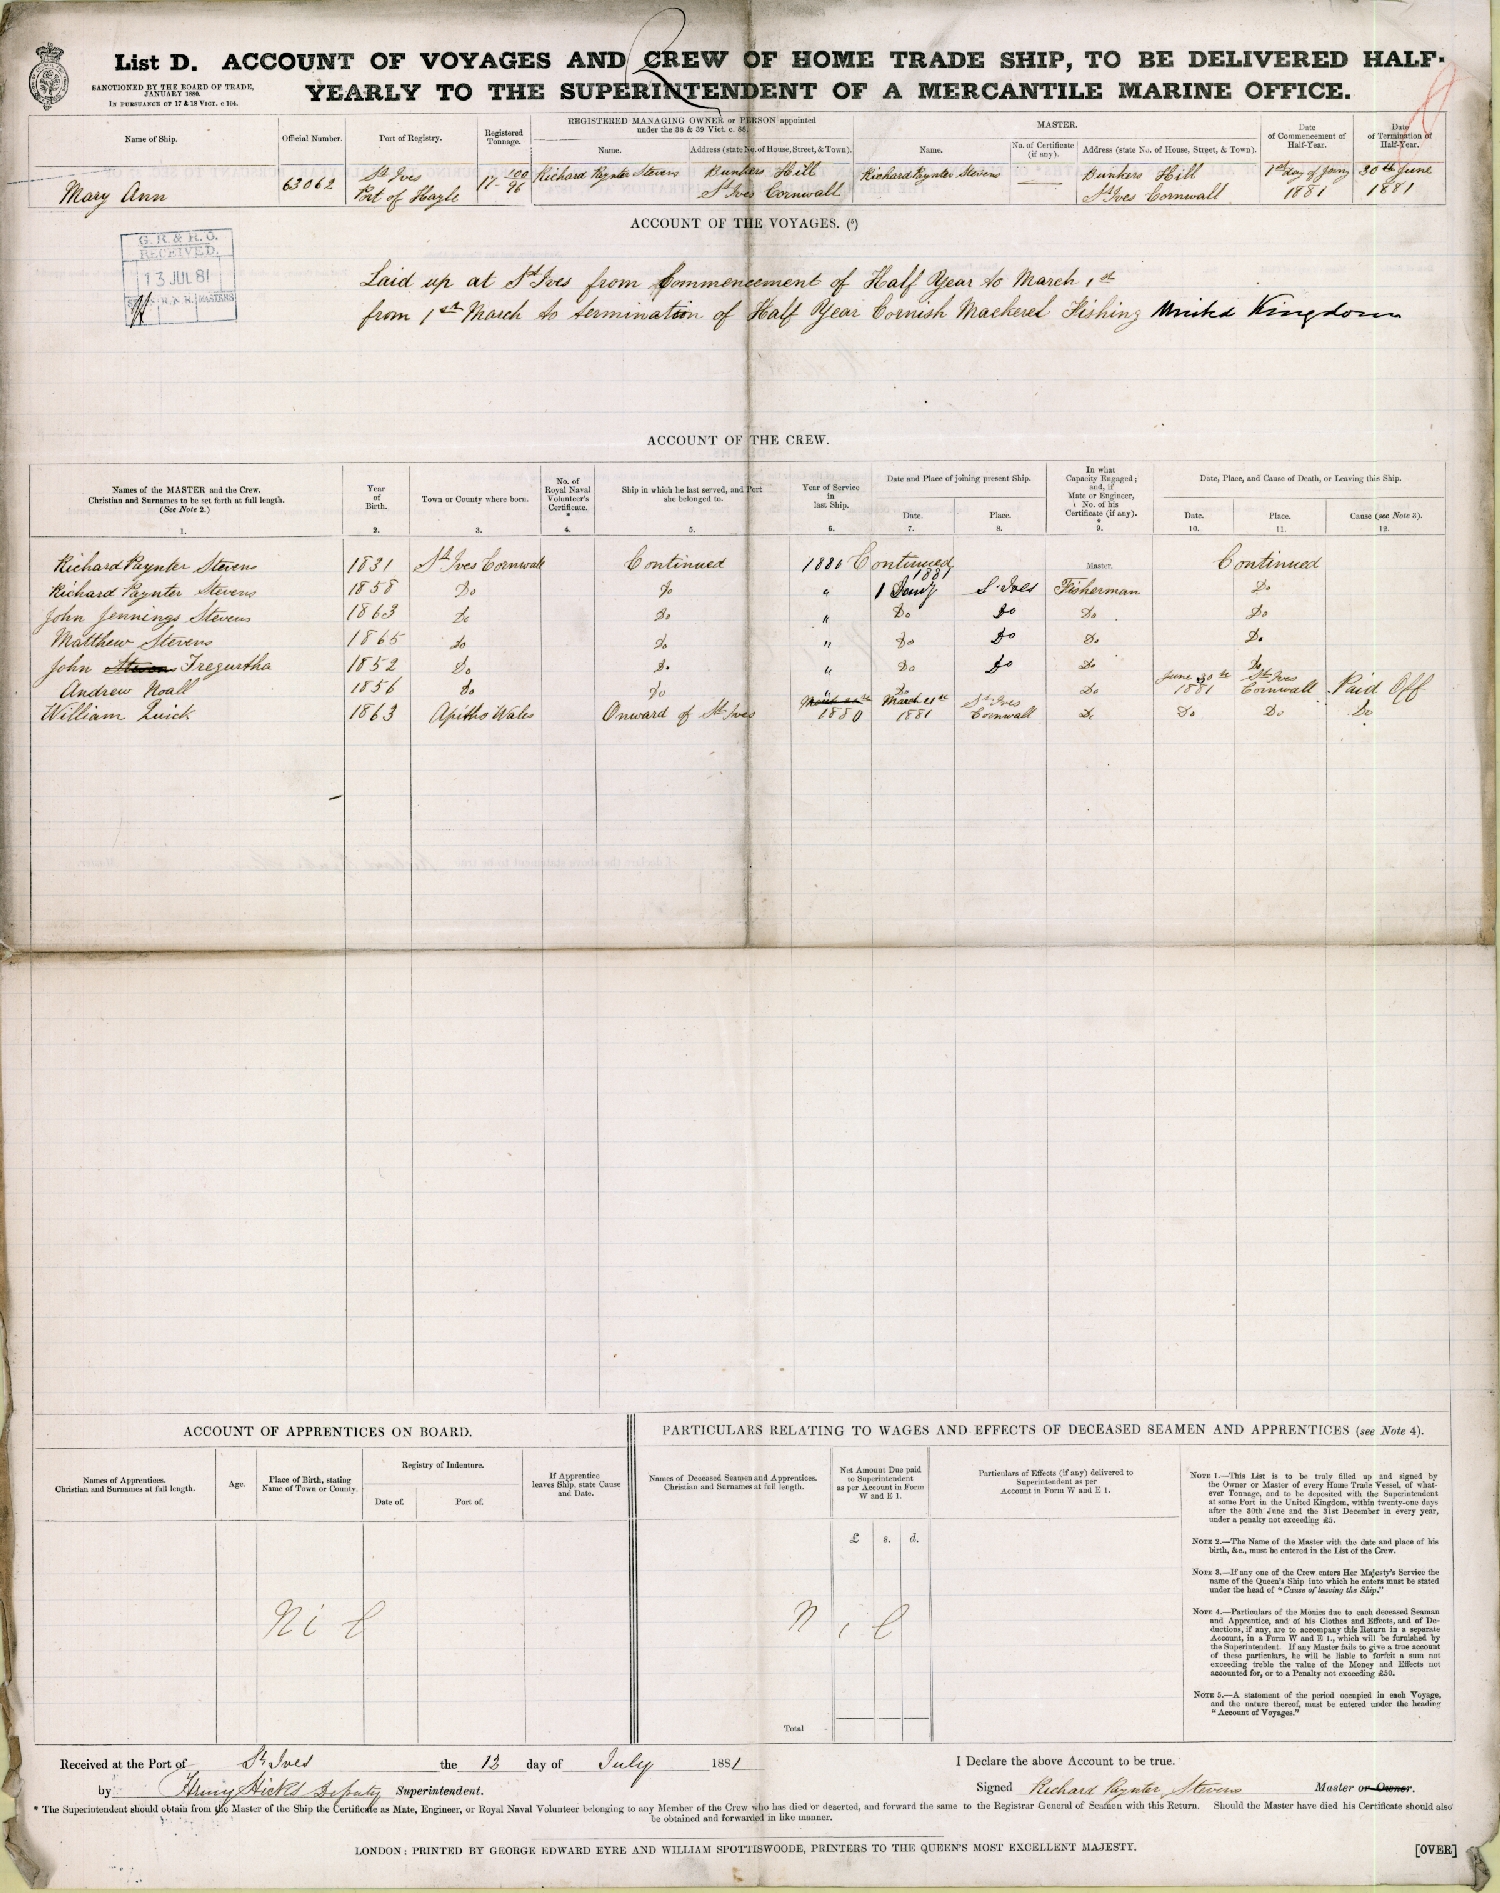 List D. ACCOUNT OF VOYAGES AND CREW OF HOME TRADE SHIP, TO BE DELIVERED HALF-
YEARLY TO THE SUPERINTENDENT OF A MERCANTILE MARINE OFFICE.
SANCTIONED BY THE BOARD OF TRADE,
JANUARY 1880.
IN PURSUANCE OF 17 & 18 VICT. c 104.
Name of Ship.
Official Number.
Port of Registry.
Registered Tonnage.
REGISTERED MANAGING OWNER or PERSON appointed
under the 38 & 39 Vict. c. 88.
Name.
Address (state No. of House, Street, & Town).
MASTER.
Name.
No. of Certificate (if any).
Address (state No. of House, Street, & Town).
Date of Commencement of Half-Year.
Date of Termination of Half-Year.
Mary Ann
63062
St Ives
Port of Hayle
17
Richard Paynter Stevens
Bunkers Hill
St Ives Cornwall
Richard Paynter Stevens
Bunkers Hill
St Ives Cornwall
1st day of Jany
1881
30th June
1881
G. R. & R. O.
RECEIVED.
13 JUL 81
ACCOUNT OF THE VOYAGES. (5)
Laid up at St Ives from Commencement of Half Year to March 1st
from 1st March to termination of Half Year Cornish Mackerel Fishing United Kingdom
ACCOUNT OF THE CREW.
Names of the MASTER and the Crew.
Christian and Surnames to be set forth at full length.
(See Note 2.)
1.
Year of Birth.
2.
Town or County where born.
3.
No. of Royal Naval Volunteer's Certificate.
*
4.
Ship in which he last served, and Port she belonged to.
5.
Year of Service in last Ship.
6.
Date and Place of joining present Ship.
Date.
7.
Place.
8.
In what Capacity Engaged; and, if Mate or Engineer, No. of his Certificate (if any).
*
9.
Date, Place, and Cause of Death, or Leaving this Ship.
Date.
10.
Place.
11.
Cause (see Note 3).
12.
Richard Paynter Stevens 1831 St Ives Cornwall Continued 1880 Continued Master. Continued
Richard Paynter Stevens 1858 Do Do " 1 Jany 1881 St Ives Fisherman Do
John Jennings Stevens 1863 Do Do " Do Do Do Do
Matthew Stevens 1865 Do Do " Do Do Do Do
John Tregurtha 1852 Do Do " Do Do Do Do
Andrew Noall 1856 Do Do " Do Do June 30th 1881 St Ives Cornwall Paid Off
William Quick 1863 Wales Onward of St Ives 1880 March 1881 St Ives Cornwall Do Do Do Do
ACCOUNT OF APPRENTICES ON BOARD.
Names of Apprentices.
Christian and Surnames at full length.
Age.
Place of Birth, stating Name of Town or County.
Registry of Indenture.
Date of.
Port of.
If Apprentice leaves Ship, state Cause and Date.
Nil
PARTICULARS RELATING TO WAGES AND EFFECTS OF DECEASED SEAMEN AND APPRENTICES (see Note 4).
Names of Deceased Seamen and Apprentices.
Christian and Surnames at full length.
Net Amount Due paid to Superintendent as per Account in Form W and E 1.
£ s. d.
Particulars of Effects (if any) delivered to Superintendent as per Account in Form W and E 1.
Nil
Total
NOTE 1.—This List is to be truly filled up and signed by
the Owner or Master of every Home Trade Vessel, of what-
ever Tonnage, and to be deposited with the Superintendent
at some Port in the United Kingdom, within twenty-one days
after the 30th June and the 31st December in every year,
under a penalty not exceeding £5.
NOTE 2.—The Name of the Master with the date and place of his
birth, &c., must be entered in the List of the Crew.
NOTE 3.—If any one of the Crew enters Her Majesty's Service the
name of the Queen's Ship into which he enters must be stated
under the head of "Cause of leaving the Ship."
NOTE 4.—Particulars of the Monies due to each deceased Seaman
and Apprentice, and of his Clothes and Effects, and of De-
ductions, if any, are to accompany this Return in a separate
Account, in a Form W and E 1., which will be furnished by
the Superintendent. If any Master fails to give a true account
of these particulars, he will be liable to forfeit a sum not
exceeding treble the value of the Money and Effects not
accounted for, or to a Penalty not exceeding £50.
NOTE 5.—A statement of the period occupied in each Voyage,
and the nature thereof, must be entered under the heading
"Account of Voyages."
Received at the Port of St Ives the 13 day of July 1881
by Henry Hicks Deputy Superintendent.
I Declare the above Account to be true.
Signed Richard Paynter Stevens Master or Owner.
* The Superintendent should obtain from the Master of the Ship the Certificate as Mate, Engineer, or Royal Naval Volunteer belonging to any Member of the Crew who has died or deserted, and forward the same to the Registrar General of Seamen with this Return. Should the Master have died his Certificate should also
be obtained and forwarded in like manner.
LONDON: PRINTED BY GEORGE EDWARD EYRE AND WILLIAM SPOTTISWOODE, PRINTERS TO THE QUEEN'S MOST EXCELLENT MAJESTY.
[OVER]